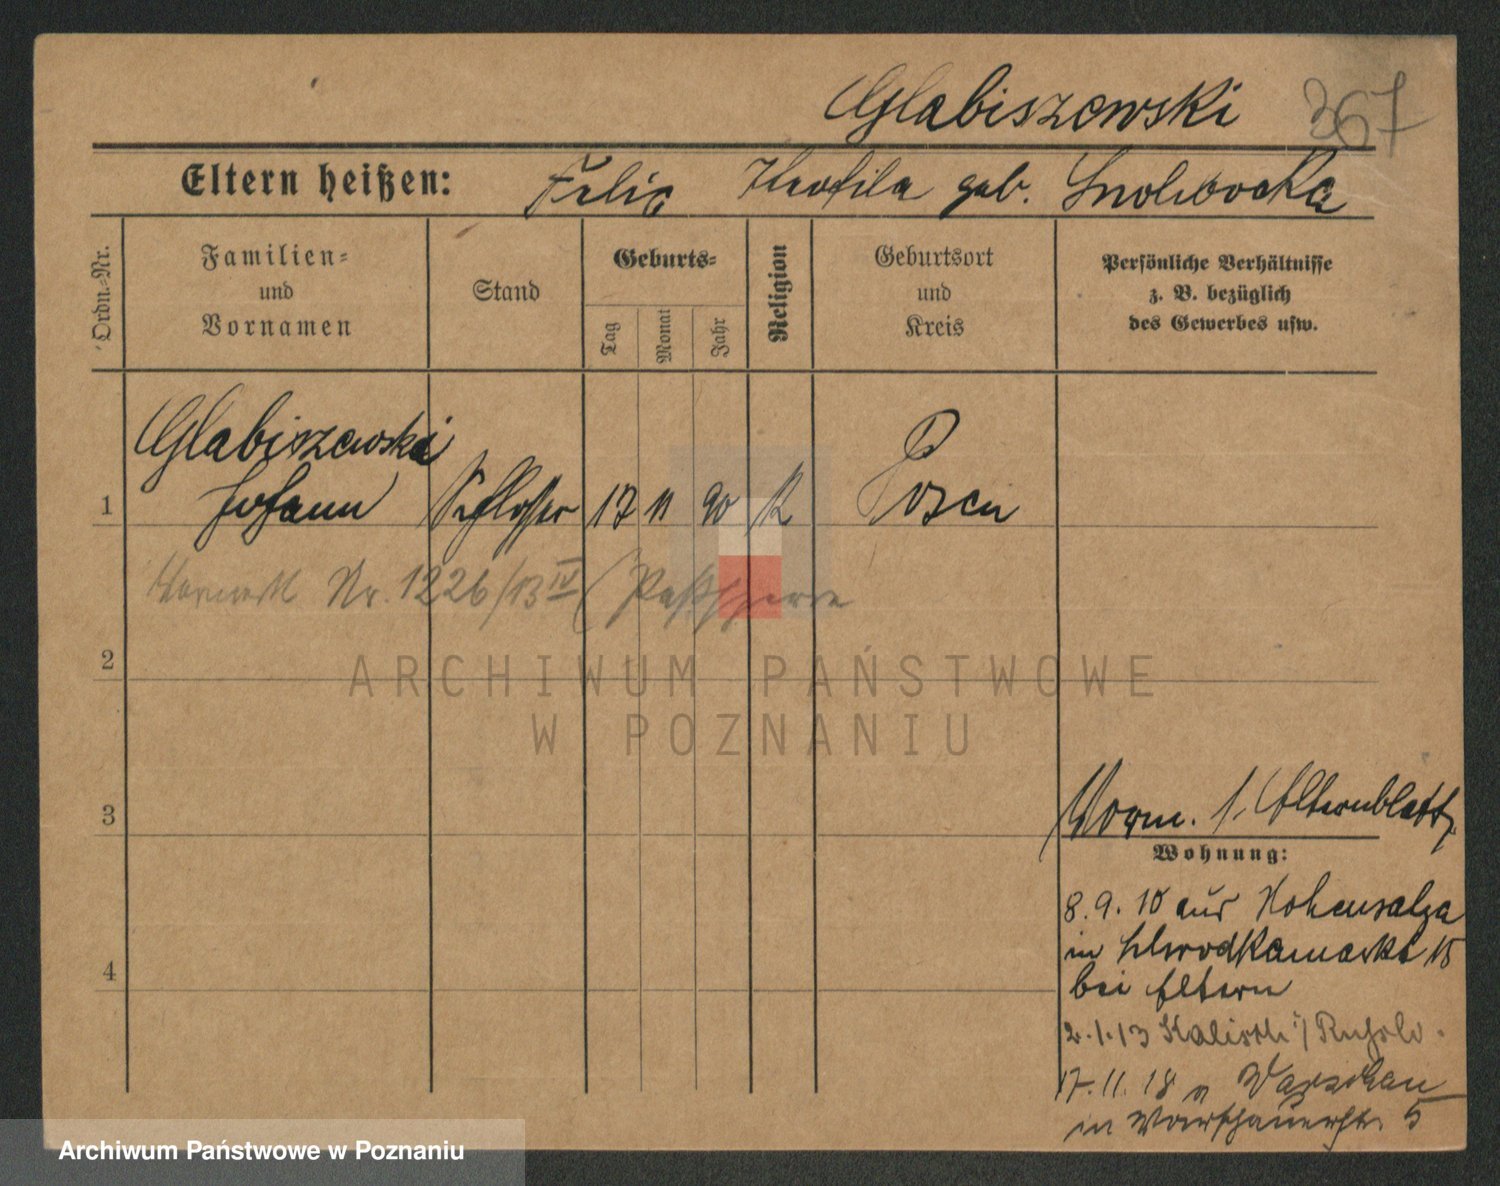 Glabiszewski 367
Eltern heißen: Felix Theofila geb.
Ordn.-Nr.
Familien-
und
Vornamen
Stand
Geburts-
Tag
Monat
Jahr
Religion
Geburtsort
und
Kreis
Persönliche Verhältnisse
z. B. bezüglich
des Gewerbes usw.
Glabiszewski
1 Johann Schlosser 17 11 90 K Posen
Nr. 1226/13 IV (Paßsperre
2
ARCHIWUM PAŃSTWOWE
W POZNANIU
3
Vorm. s. Elternblatt
Wohnung:
8.9.10 aus Hohensalza
in 15
bei Eltern
4
2.1.13 Kalisch i/Rußld.
17.11.18 v Warschau
in Warschauerstr. 5
Archiwum Państwowe w Poznaniu